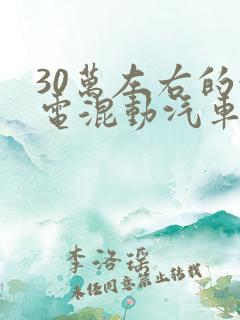 30萬左右的
電混動汽車
李洛瑶
未经同意禁止转载